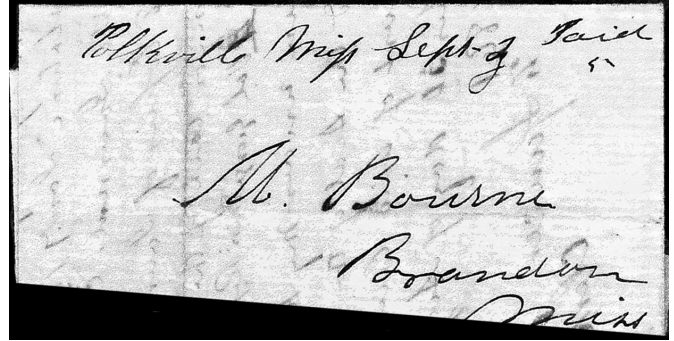 Polkville Miss Sept 3 Paid
5
M. Bourne
Brandon
Miss